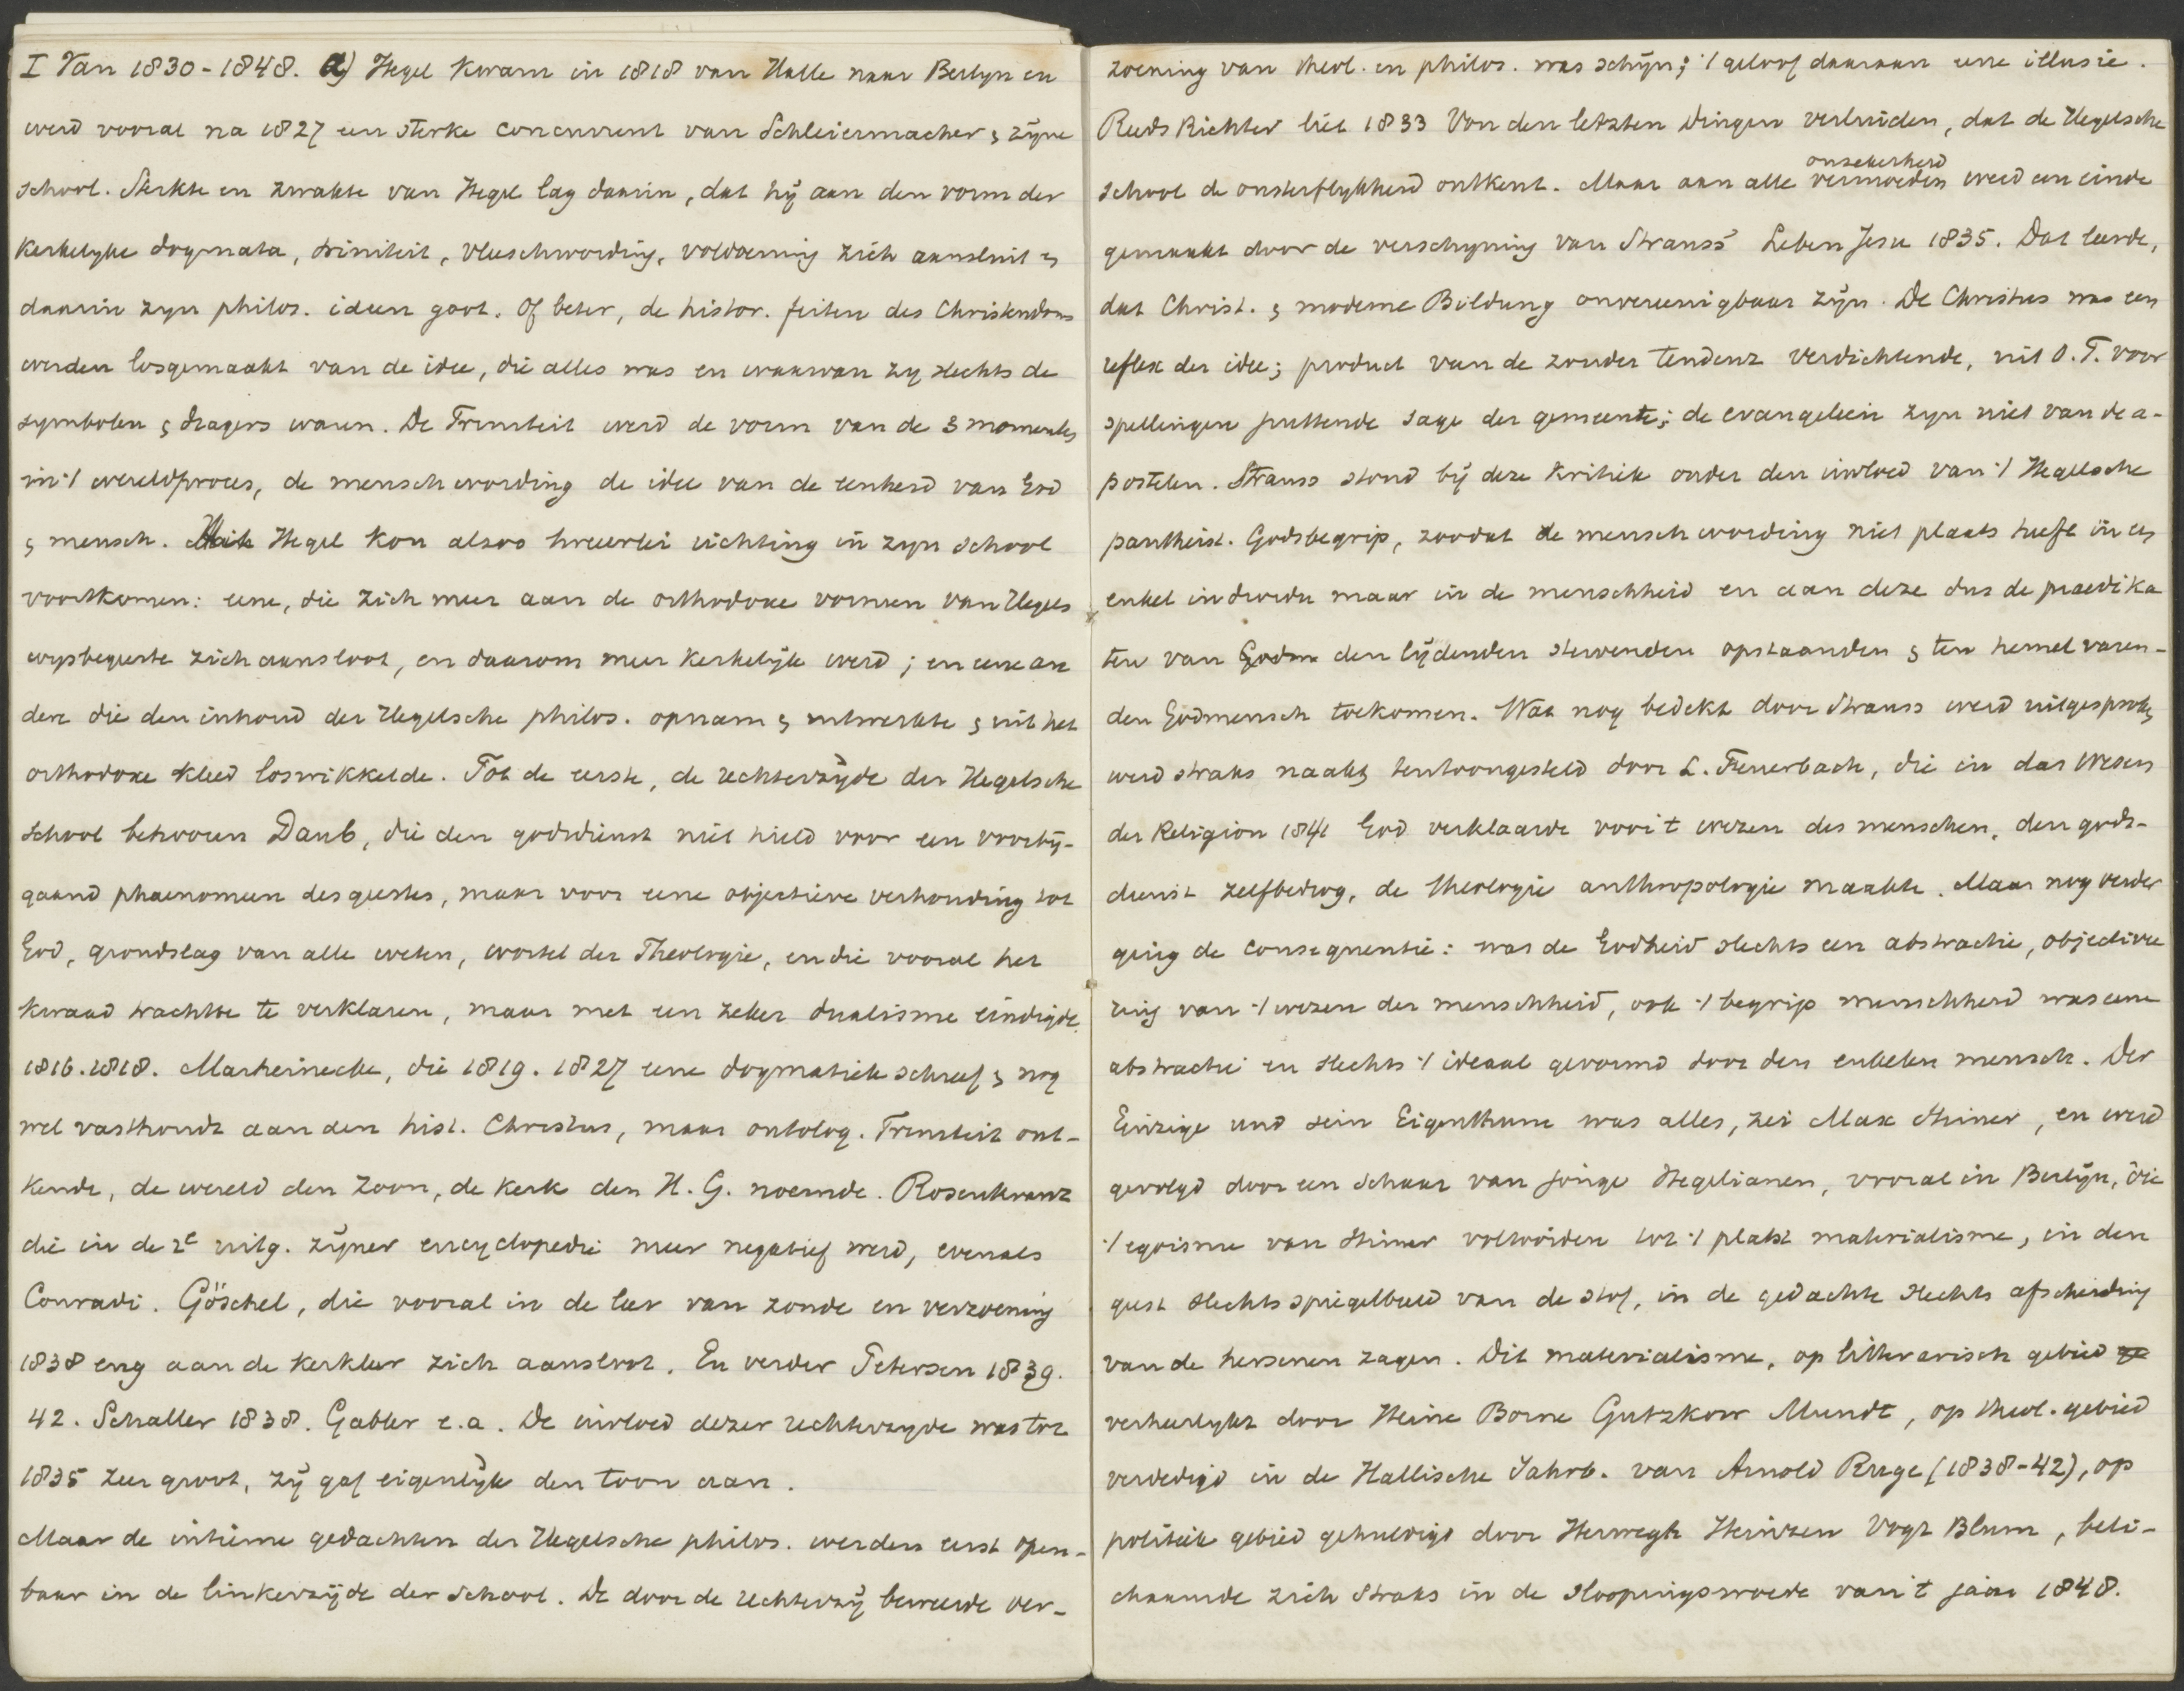 I Van 1830-1848. a) Hegel kwam in 1818 van Halle naar Berlyn en
werd vooral na 1827 een sterke concurrent van Schleiermacher & zijne
school. Sterkte en zwakte van Hegel lag daarin, dat hij aan den vorm der
kerkelyke dogmata, triniteit, vleeschwording, voldoening zich aansluit en
daarin zyn philos. ideen goot. Of beter, de histor. feiten des Christendoms
werden losgemaakt van de idee, die alles was en waarvan zy slechts de
symbolen & dragers waren. De Triniteit werd de vorm van de 3 momenten
in 't wereldproces, de menschwording de idee van de eenheid van God
& mensch. Uit Hegel kon alzoo tweeerlei richting in zyn school
voortkomen: eene, die zich meer aan de orthodoxe vormen van Hegels
wysbegeerte zich aansloot, en daarom meer kerkelijk werd; en eene an
dere die den inhoud der Hegelsche philos. opnam & uitwerkte & uit het
orthodoxe kleed loswikkelde. Tot de eerste, de rechterzijde der Hegelsche
school behooren Daub, die den godsdienst niet hield voor een voorbij-
gaand phaenomeen des geestes, maar voor eene objectieve verhouding tot
God, grondslag van alle weten, wortel der Theologie, en die vooral het
kwaad trachtte te verklaren, maar met een zeker dualisme eindigde.
1816.1818. Marheinecke, die 1819. 1827 eene dogmatiek schreef & nog
wel vasthoudt aan den hist. Christus, maar ontolog. Triniteit ont-
kende, de wereld den Zoon, de kerk den H. G. noemde. Rosenkranz
die in de 2e uitg. zijner encyclopedie meer negatief werd, evenals
Conradi. Göschel, die vooral in de leer van zonde en verzoening
1838 eng aan de kerkleer zich aansloot. En verder Petersen 1839.
42. Schaller 1838. Gabler e.a. De invloed dezer rechterzyde was tot
1835 zeer groot, zij gaf eigenlijk den toon aan.
Maar de intieme gedachten der Hegelsche philos. werden eerst open-
baar in de linkerzijde der school. De door de rechterzij beweerde ver-
zoening van theol. en philos. was schijn; 't geloof daaraan eene illusie.
Reeds Richter liet 1833 Von den letzten Dingen verluiden, dat de Hegelsche
onzekerheid
school de onsterflykheid ontkent. Maar aan alle vermoeden werd een einde
gemaakt door de verschyning van Strauss' Leben Jesu 1835. Dat leerde,
dat Christ. & moderne Bildung onvereenigbaar zijn. De Christus was een
reflex der idee; product van de zonder tendenz verdichtende, uit O.T. voor
spellingen puttende sage der gemeente; de evangelien zyn niet van de a-
postelen. Strauss stond bij deze kritiek onder den invloed van 't Hegelsche
pantheist. Godsbegrip, zoodat de menschwording niet plaats heeft in een
enkel individu maar in de menschheid en aan deze dus de praedika
ten van den lijdenden stervenden opstaanden & ten hemel varen-
den Godmensch toekomen. Wat nog bedekt door Strauss werd uitgesproken
werd straks naakt tentoongesteld door L. Feuerbach, die in das Wesen
der Religion 1841 God verklaarde voor 't wezen des menschen, den gods-
dienst zelfbedrog, de theologie anthropologie maakte. Maar nog verder
ging de consequentie: was de Godheid slechts een abstractie, objectivee
ring van 't wezen der menschheid, ook 't begrip menschheid was eene
abstractie en slechts 't ideaal gevormd door den enkelen mensch. Der
Einzige und sein Eigenthum was alles, zei Max Stirner, en werd
gevolgd door een schaar van jonge Hegelianen, vooral in Berlijn, die
't egoisme van Stirner voltooiden tot 't platst materialisme, in den
geest slechts spiegelbeeld van de stof, in de gedachte slechts afscheiding
van de hersenen zagen. Dit materialisme, op litterarisch gebied ge
verheerlykt door Heine Borne Gutzkow Mundt, op theol. gebied
verdedigd in de Hallische Jahrb. van Arnold Ruge (1838-42), op
politiek gebied gehuldigd door Herwegh Heinzen Vogt Blum, beli-
chaamde zich straks in de sloopingswoede van 't jaar 1848.